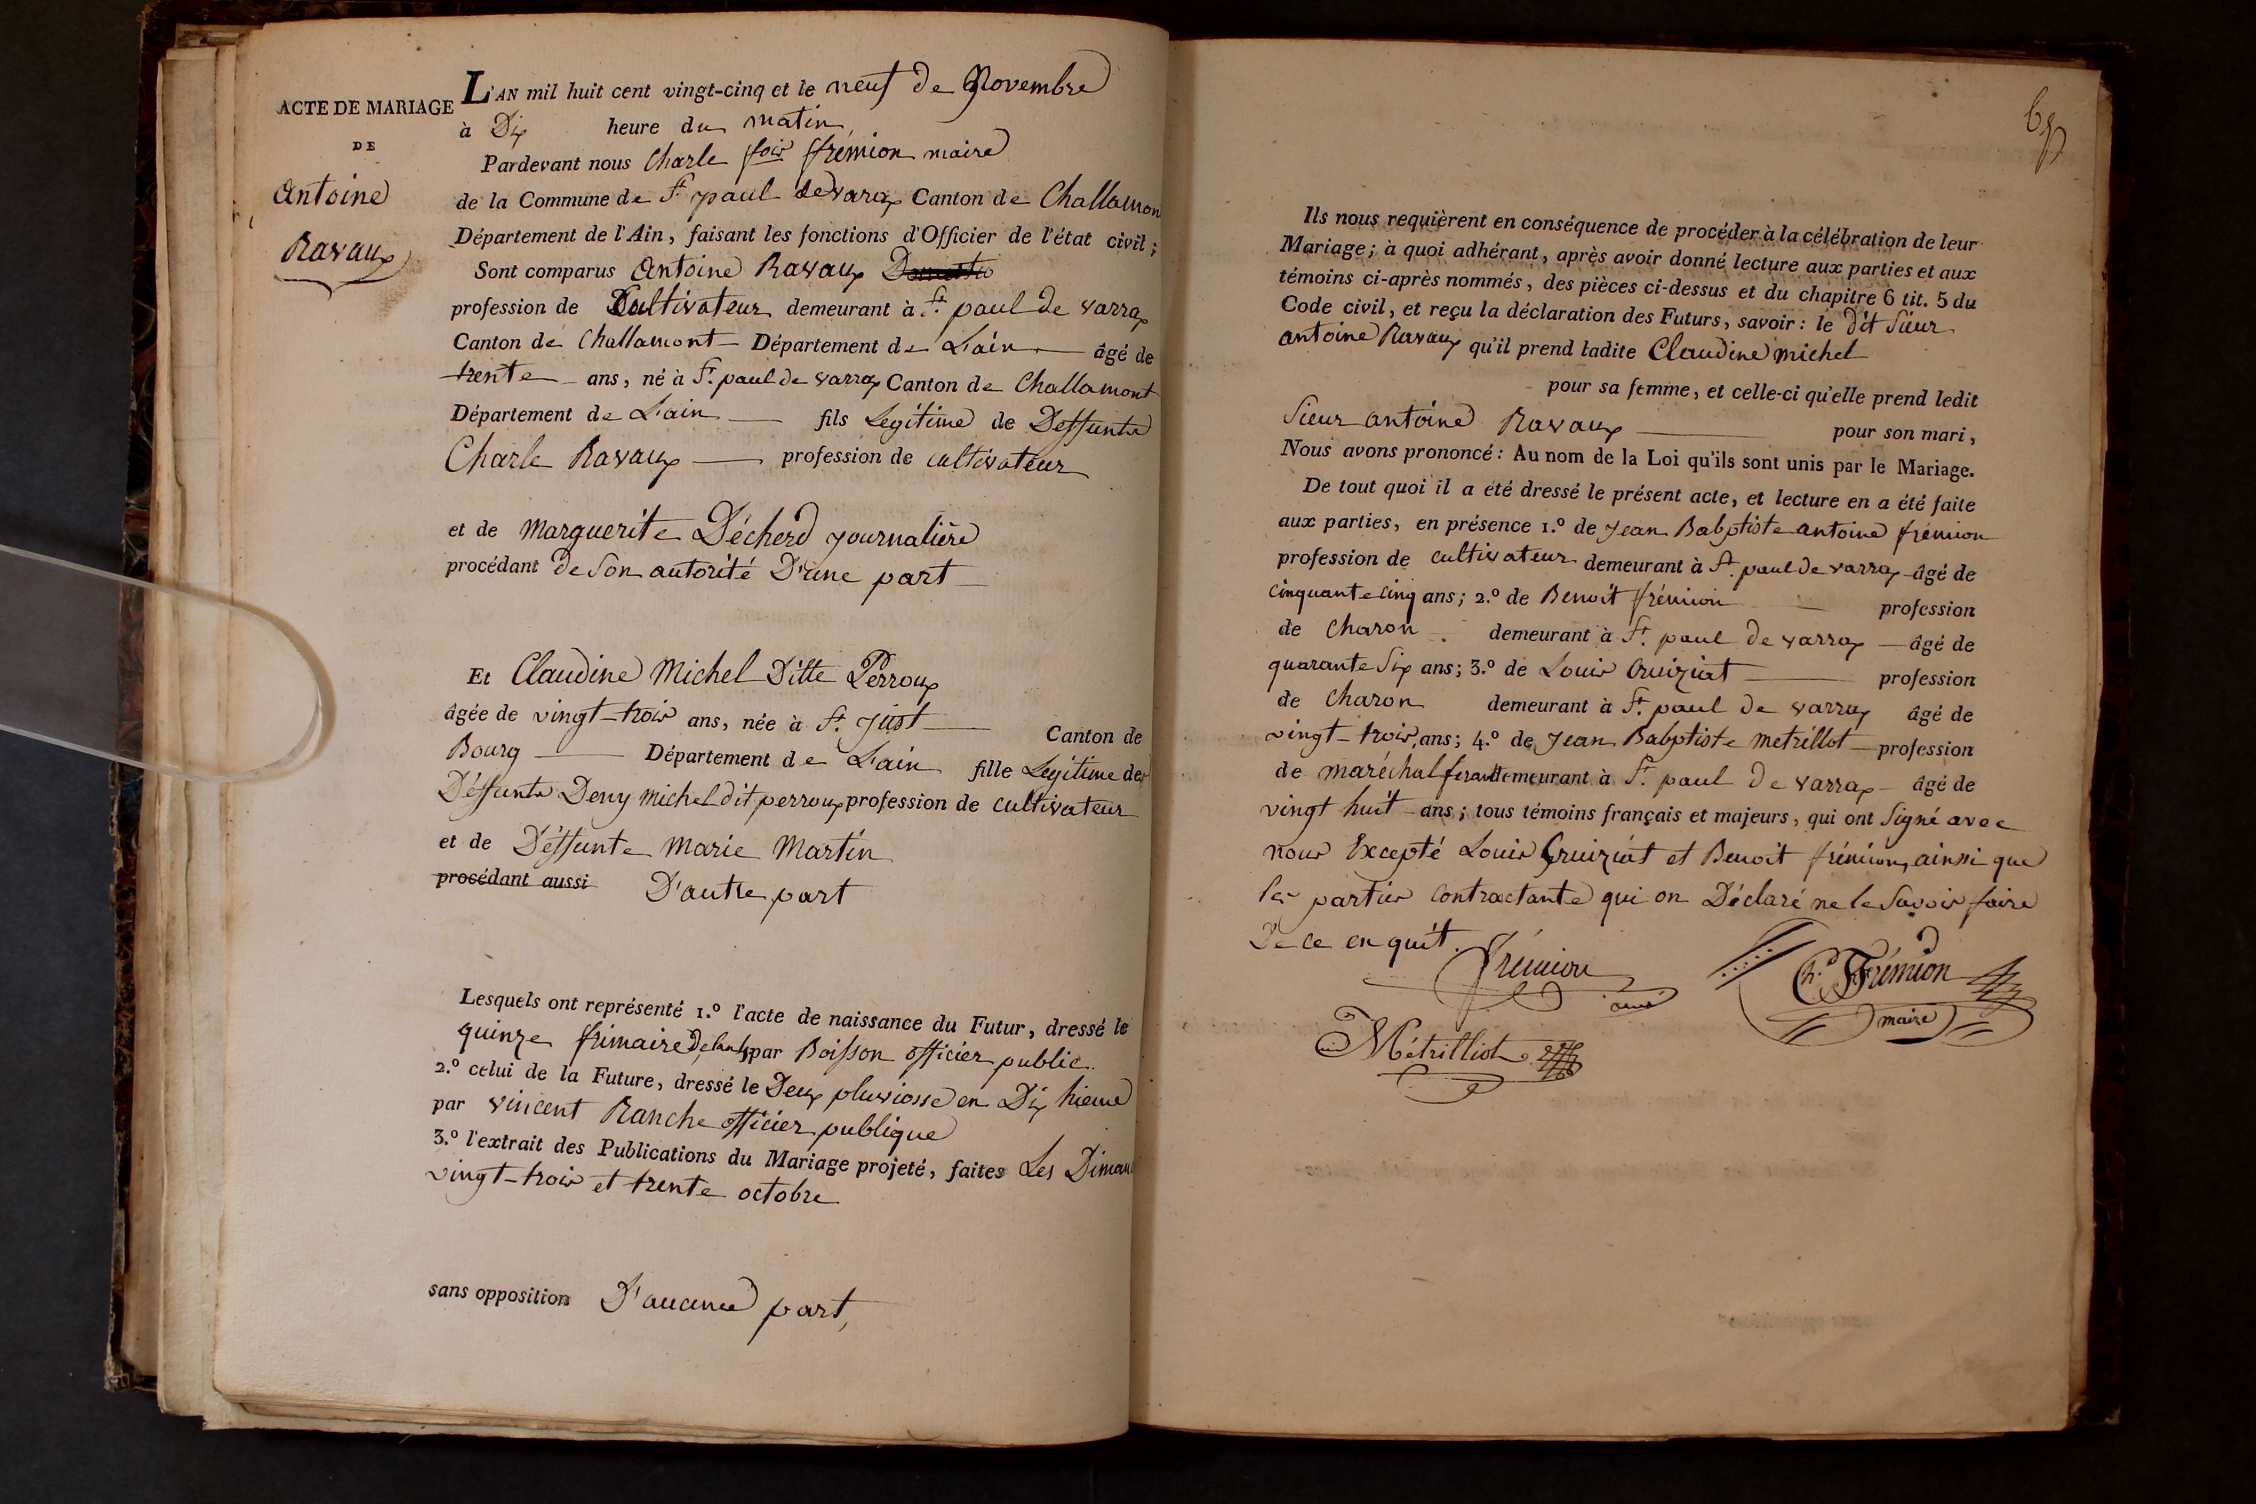 ACTE DE MARIAGE
DE
Antoine
Ravaux
L'AN mil huit cent vingt-cinq et le neuf de Novembre
à Dix heure du matin
Pardevant nous Charle fois frémion maire
de la Commune de St. paul de varax Canton de Challamon
Département de l'Ain, faisant les fonctions d'Officier de l'état civil;
Sont comparus Antoine Ravaux
profession de Cultivateur demeurant à St. paul de varrax
Canton de Challamont Département de L'ain âgé de
trente ans, né à St. paul de varrax Canton de Challamont
Département de L'ain fils Legitime de Deffunte
Charle Ravaux profession de cultivateur
et de Marguerite Décherd journalière
procédant de Son autorité D'une part
Et Claudine Michel Ditte Perroux
âgée de vingt-trois ans, née à St. Just Canton de
Bourg Département de L'ain fille Legitime de
Déffunte Deny Michel dit perroux profession de cultivateur
et de Déffunte Marie Martin
procédant aussi D'autre part
Lesquels ont représenté 1.º l'acte de naissance du Futur, dressé le
quinze frimaire par Boisson officier public.
2.º celui de la Future, dressé le Deux pluviosse en Dix hieme
par vincent Ranche officier publique
3.º l'extrait des Publications du Mariage projeté, faites Les Diman
vingt-trois et trente octobre
sans opposition D'aucune part,
Ils nous requièrent en conséquence de procéder à la célébration de leur
Mariage; à quoi adhérant, après avoir donné lecture aux parties et aux
témoins ci-après nommés, des pièces ci-dessus et du chapitre 6 tit. 5 du
Code civil, et reçu la déclaration des Futurs, savoir: le dit Sieur
antoine Ravaux qu'il prend ladite Claudine michel
pour sa femme, et celle-ci qu'elle prend ledit
Sieur antoine Ravaux pour son mari,
Nous avons prononcé: Au nom de la Loi qu'ils sont unis par le Mariage.
De tout quoi il a été dressé le présent acte, et lecture en a été faite
aux parties, en présence 1.º de Jean Babptiste antoine frémion
profession de cultivateur demeurant à St. paul de varrax âgé de
cinquante cinq ans; 2.º de Benoit frémion profession
de charon demeurant à St. paul de varrax âgé de
quarante Six ans; 3.º de Louis Cruiziat profession
de charon demeurant à St. paul de varrax âgé de
vingt-trois ans; 4.º de Jean Babptiste metrillot profession
de maréchal ferant demeurant à St. paul de varrax âgé de
vingt huit ans; tous témoins français et majeurs, qui ont Signé avec
nous Excepté Louis Cruiziat et Benoit frémion, ainsi que
les parties contractante qui on Déclaré ne le Savoir faire
De ce enquit.
frémion
Ch. Frémion
maire
Métrilliot